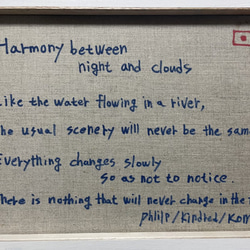 Harmony between
night and clouds
Like the water flowing in a river,
the usual scenery will never be the same
Everything changes slowly
so as not to notice.
There is nothing that will never change in the
philip/kindred/Kom